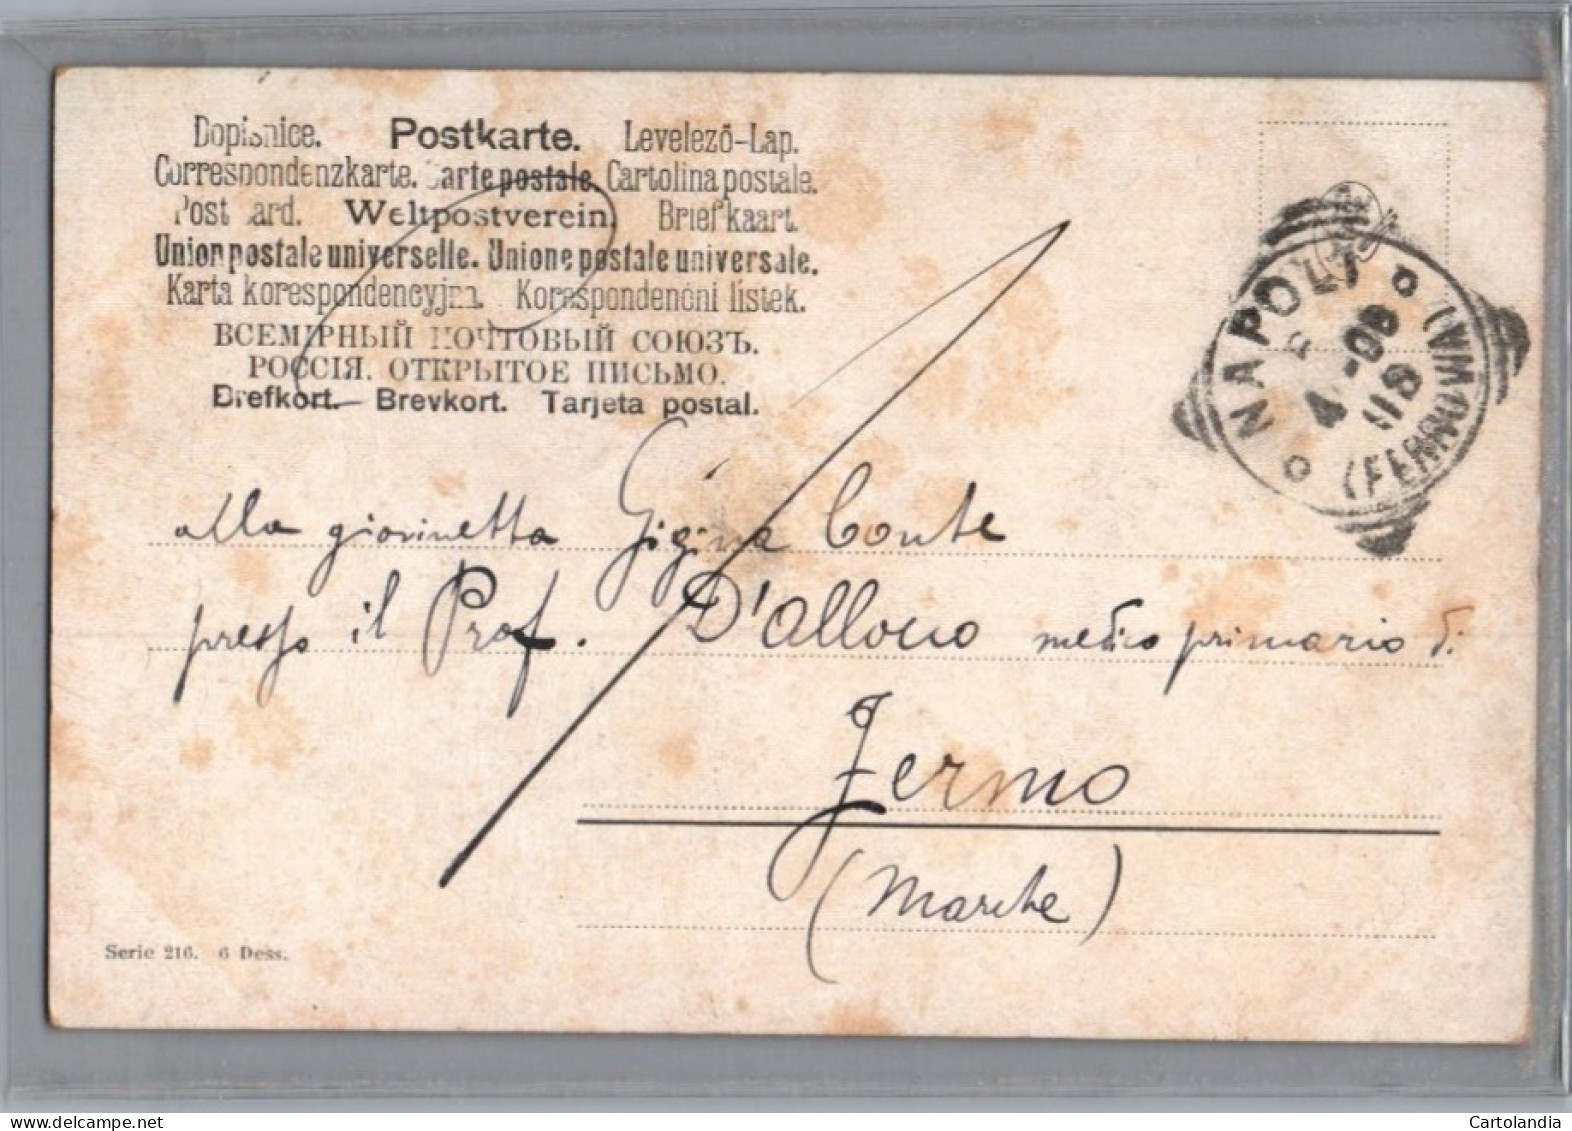 Dopisnice. Postkarte. Levelező-Lap.
Correspondenzkarte. Carte postale. Cartolina postale.
Post Card. Weltpostverein. Briefkaart.
Union postale universelle. Unione postale universale.
Karta korespondencyjna. Korespondenční lístek.
ВСЕМІРНЫЙ ПОЧТОВЫЙ СОЮЗЪ.
РОССІЯ. ОТКРЫТОЕ ПИСЬМО.
Brefkort. Brevkort. Tarjeta postal.
NAPOLI
(FERROVIA)
alla giovinetta Gigina Conte
presso il Prof. D'Allocco medico primario di
Fermo
(Marche)
Serie 216. 6 Dess.
www.delcampe.net
Cartolandia